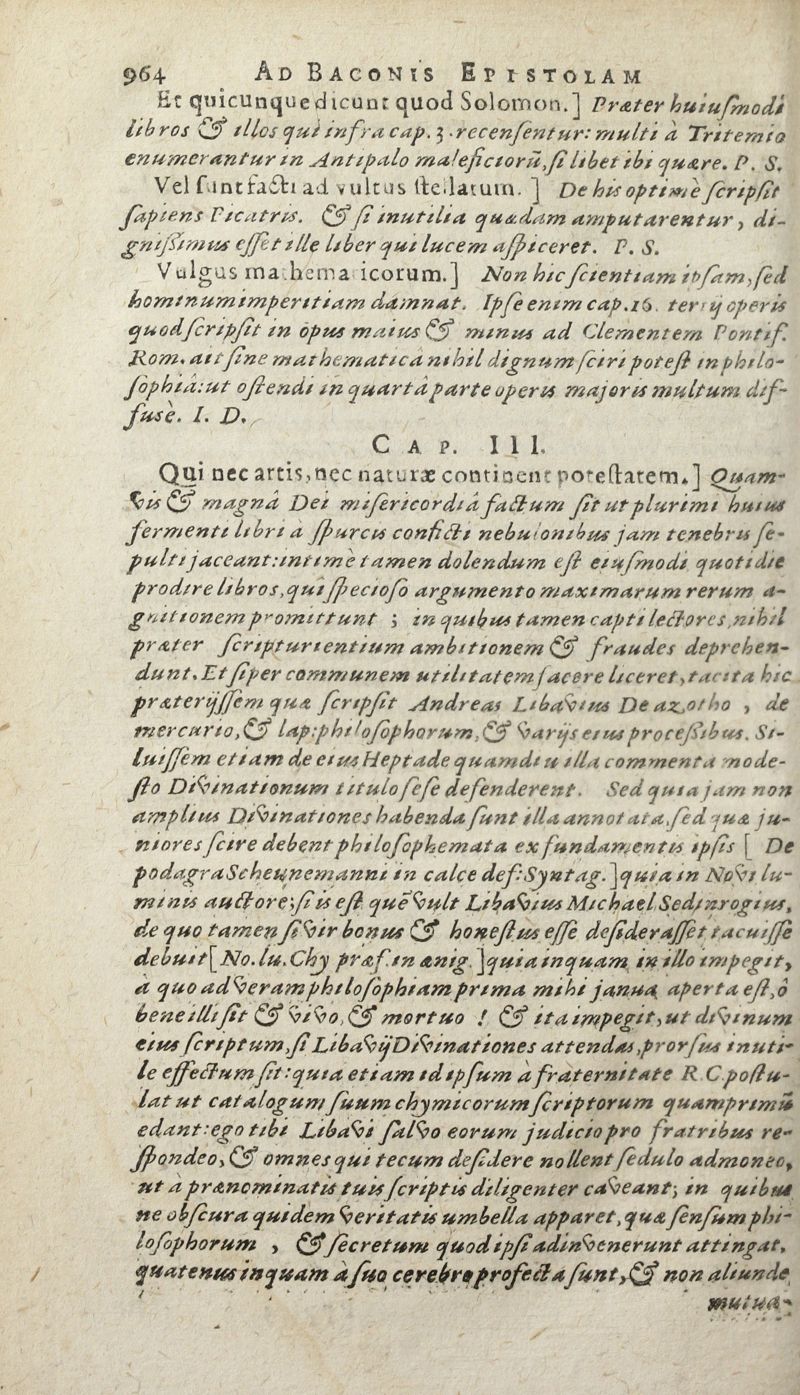 964 AD BACONIS EPISTOLAM
Et quicunque dicunt quod Solomon.] Præter huiuſmodi
libros & illos qui infra cap. 3. recenſentur: multi à Tritemio
enumerantur in Antipalo maleficiorũ, ſi libet ibi quære. P. S.
Vel ſint facti ad vultus ſtellatum.] De his optimè ſcripſit
ſapiens Picatris. & ſi inutilia quædam amputarentur, di-
gniſsimus eſſet ille liber qui lucem aſpiceret. P. S.
Vulgus mathematicorum.] Non hic ſcientiam ipſam, ſed
hominum imperitiam damnat. Ipſe enim cap. 16. tertij operis
quod ſcripſit in opus maius & minus ad Clementem Pontif.
Rom. ait ſine mathematicâ nihil dignum ſciri poteſt in philo-
ſophiâ: ut oſtendi in quartâ parte operis majoris multum dif-
fuse. I. D.
CAP. III.
Qui nec artis, nec naturæ continent poteſtatem.] Quam-
vis & magnâ Dei miſericordiâ factum ſit ut plurimi huius
fermenti libri à ſpurcis conficti nebulonibus jam tenebris ſe-
pulti jaceant: intimè tamen dolendum eſt eiuſmodi quotidie
prodire libros, qui ſpecioſo argumento maximarum rerum a-
gnitionem promittunt ; in quibus tamen capti lectores, nihil
præter ſcripturientium ambitionem & fraudes deprehen-
dunt. Et ſi per communem utilitatem facere liceret, tacita hic
præterijſſem quæ ſcripſit Andreas Libavius De azotho , de
mercurio, & lap: philoſophorum, & varijs eius proceſsibus. Si-
luiſſem etiam de eius Heptade quamdiu illa commenta mode-
ſto Divinationum titulo ſeſe defenderent. Sed quia jam non
amplius Divinationes habenda ſunt illa annotata, ſed quæ ju-
niores ſcire debent philoſophemata ex fundamentis ipſis [ De
podagra Scheunemanni in calce def: Syntag. ] quia in Novi lu-
minis auctore; ſi is eſt quẽ vult Libavius Michael Sedinrogius,
de quo tamen ſi vir bonus & honeſtus eſſe deſideraſſet tacuiſſe
debuit [ No. lu. Chy præf. in ænig. ] quia inquam in illo impegit,
à quo ad veram philoſophiam prima mihi janua aperta eſt, ô
bene illi ſit & vivo, & mortuo ! & ita impegit, ut divinum
eius ſcriptum, ſi Libavij Divinationes attendas, prorſus inuti-
le effectum ſit: quia etiam id ipſum à fraternitate R. C. poſtu-
lat ut catalogum ſuum chymicorum ſcriptorum quamprimũ
edant: ego tibi Libavi ſalvo eorum judicio pro fratribus re-
ſpondeo, & omnes qui tecum deſidere nollent ſedulo admoneo,
ut à prænominatis tuis ſcriptis diligenter caveant; in quibus
ne obſcura quidem veritatis umbella apparet, quæ ſenſum phi-
loſophorum , & ſecretum quod ipſi adinvenerunt attingat,
quatenus inquam à ſuo cerebro profecta ſunt, & non aliunde
mutua-